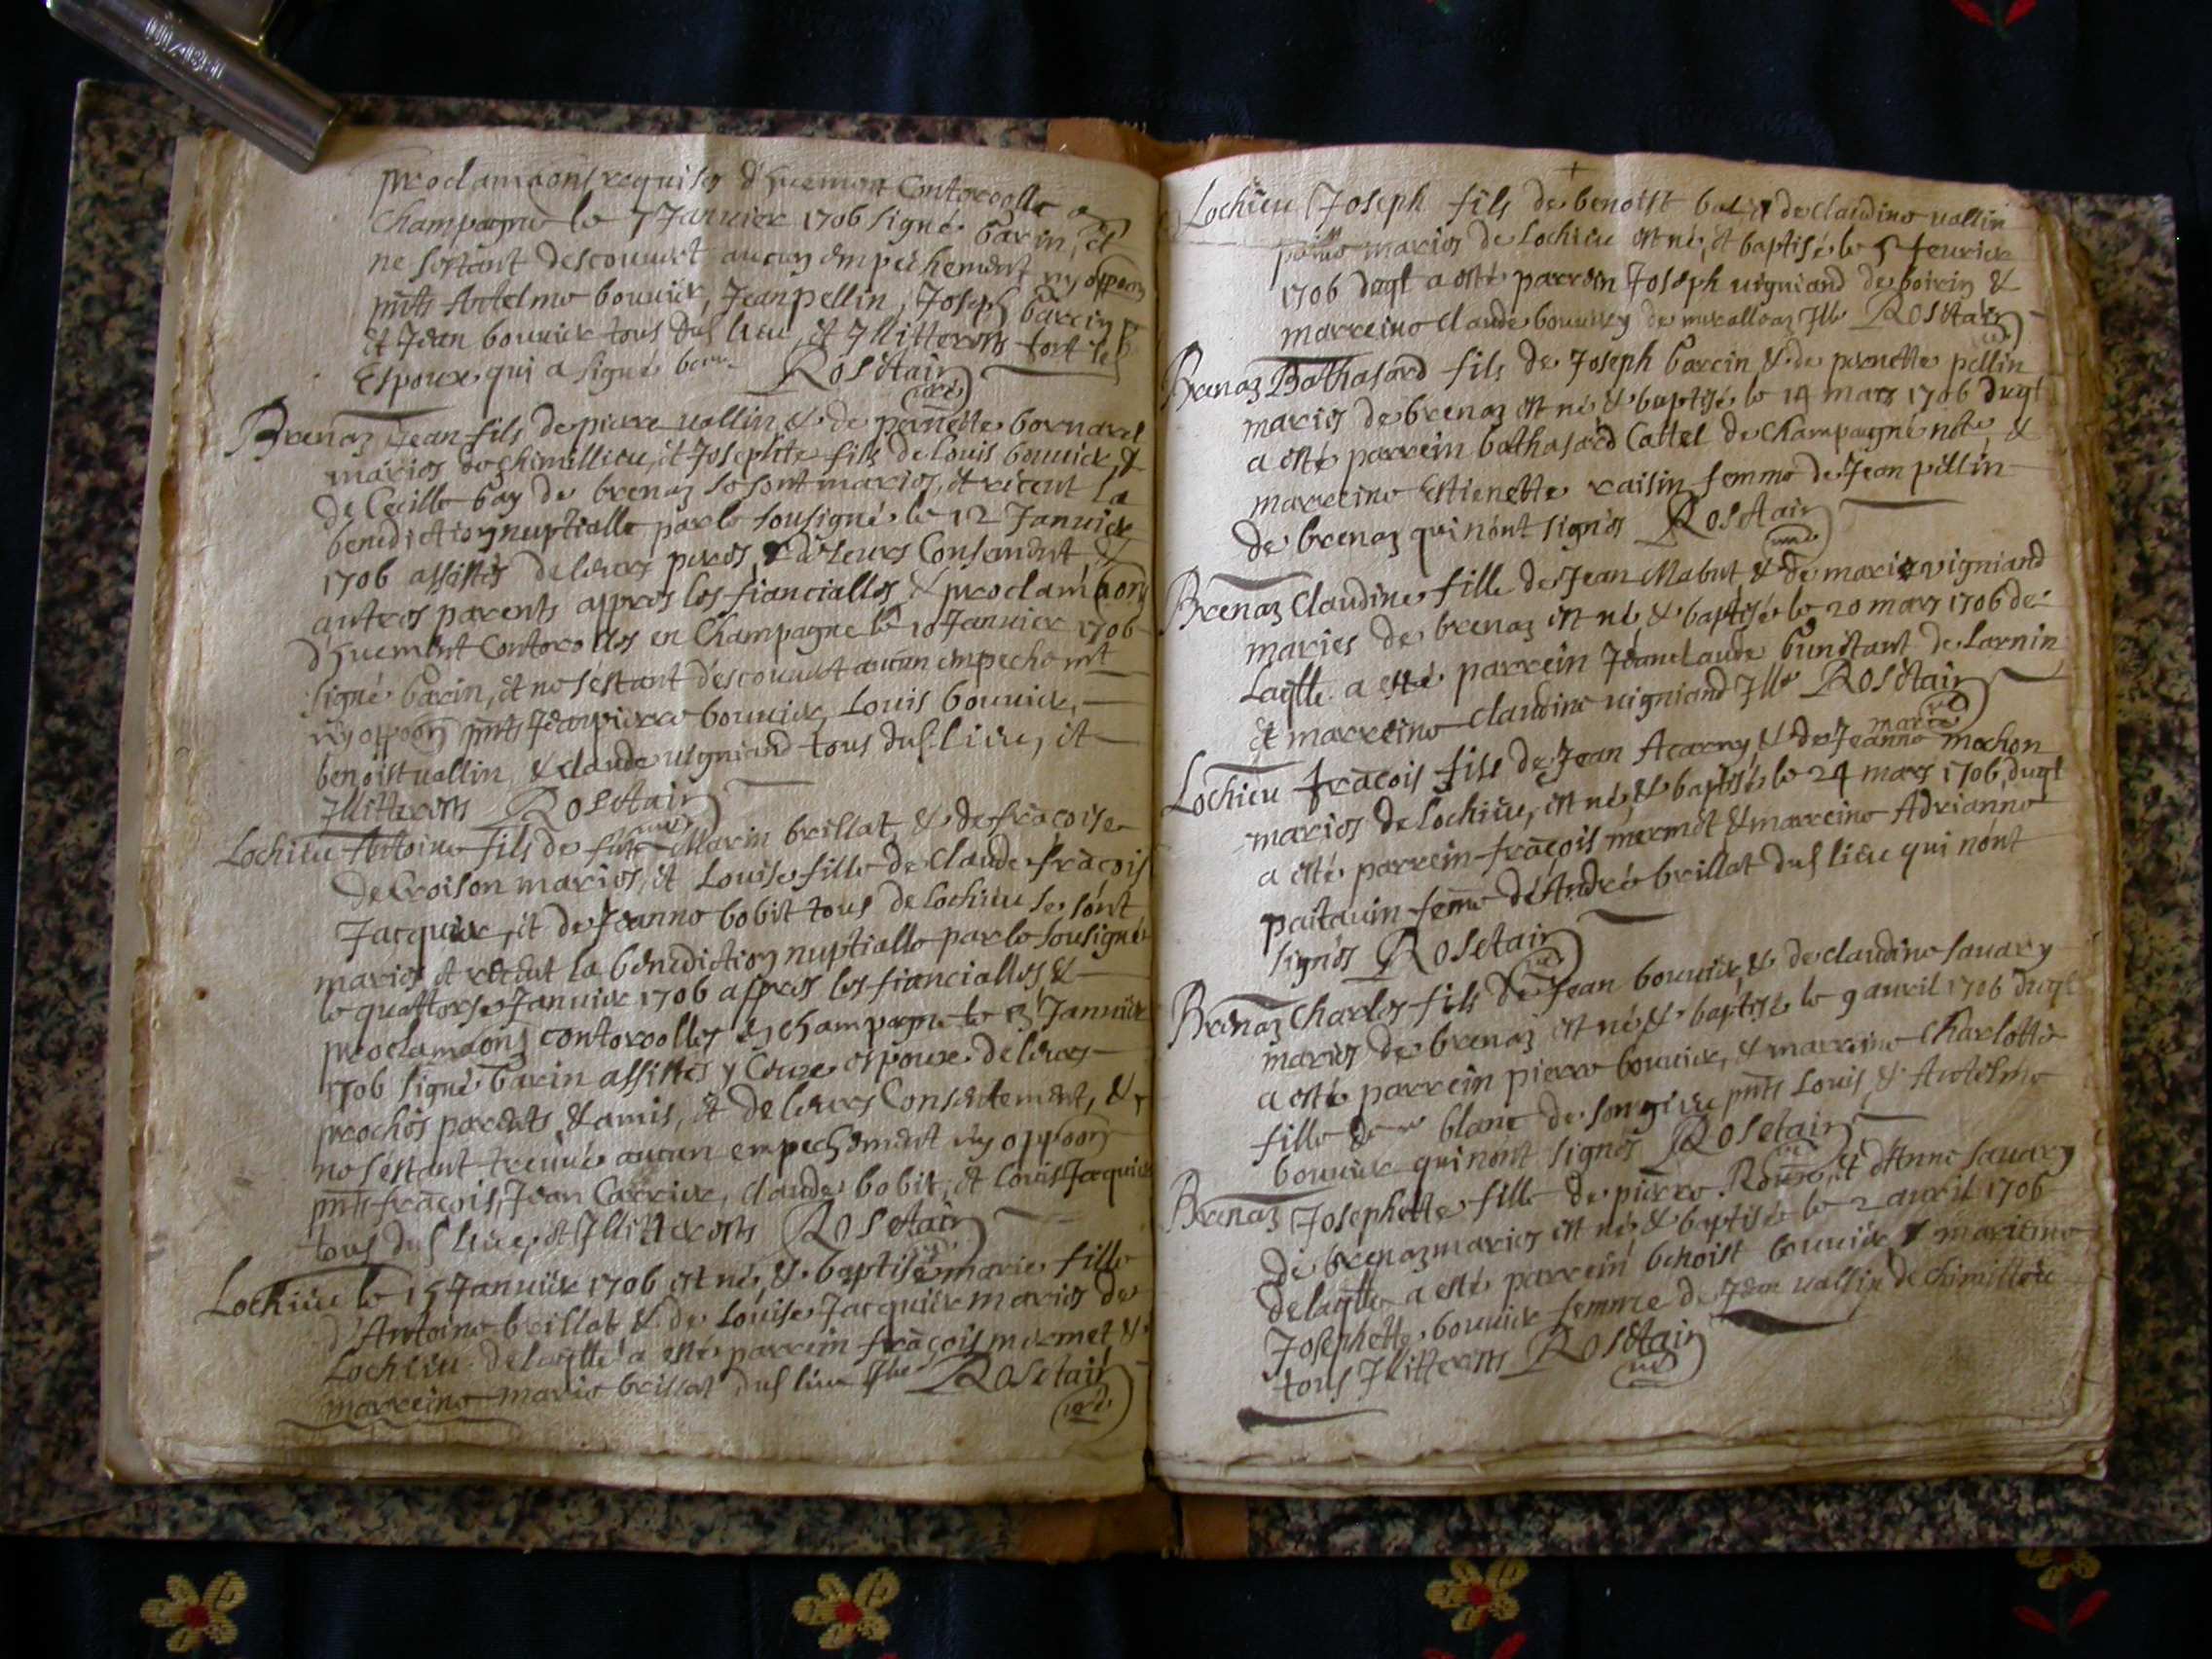 proclamaons requises d'huement Contorolle
Champagne le 7 Januier 1706 signé barin, et
ne s'estant descouuert aucun empechement ny oppoon
pnts Antelme bouuier, Jean pellin, Joseph barcin
et Jean bouuier tous dud lieu et Illitterats fort le
Espoux qui a signé Rosetain
Brenaz Jean fils de pierre uallin & de pernette bornard
maries de chimillieu, et Josephte fille de Louis bouuier, &
de Cecille bay de brenaz se sont maries, et receut la
benediction nuptialle par le sousigné le 12 Januier
1706 assistés de leurs peres, & de leurs Consement, &
autres parents appres les fiancialles & proclamaons
d'huement Contorolles en Champagne le 10 Januier 1706
signé barin, et ne s'estant descouuert aucun empechemt
ny oppoon pnts Jeanpierre bouuier, Louis bouuier,
benoist uallin & claude uigniand tous dud lieu, et
Illitterats Rosetain
Lochieu Antoine fils de Marin brillat & de fracoise
de Croison maries, et Louise fille de Claude fracois
Jacquier, et de Jeanne bobit tous de Lochieu se sont
maries et receut la benediction nuptialle par le sousigné
le quattorse Januier 1706 appres les fiancialles &
proclamaons contorolles en champagne le 13 Januier
1706 signé barin assistés y Ceux espoux de leurs
proches parents & amis, et de leurs Consentement, &
ne s'estant treuué aucun empechement ny oppoon
pnts fracois, Jean Carrier, claude bobit, et Louis Jacquier
tous dud lieu, et Illitterats Rosetain
Lochieu le 15 Januier 1706 est né, & baptisé marie fille
d'Antoine brillat & de Louise Jacquier maries de
Lochieu de laqlle a esté parrein fracois mermet &
marreine marie brillat dud lieu Ille Rosetain
Lochieu Joseph fils de benoist & de claudine uallin
maries de Lochieu est né, et baptisé le 5 feurier
1706 duql a esté parrein Joseph uigniand de boirin &
marreine claude bouuier de Ille Rosetain
Brenaz Bathasard fils de Joseph barcin & de pernette pellin
maries de brenaz est né & baptisé le 14 mars 1706 duql
a esté parrein bathasard Cattel de Champagne note, &
marreine Estienette raisin femme de Jean pellin
de brenaz qui n'ont signés Rosetain
Brenaz Claudine fille de Jean Mabut & de marie uigniand
maries de brenaz est né, & baptisé le 20 mars 1706 de
Laqlle a esté parrein Jeanclaude bunitant de Larnin
et marreine claudine uigniand Ille Rosetain
marie
Lochieu fracois fils de Jean Acarry & de Jeanne mochon
maries de Lochieu, est né, & baptisé le 24 mars 1706 duql
a esté parrein fracois mermet & marreine Adrianne
paitauin feme de André brillat dud lieu qui n'ont
signés Rosetain
Brenaz Charles fils de Jean bouuier, & de claudine sauary
maries de brenaz est né, & baptisé le 9 auril 1706 duql
a esté parrein pierre bouuier, & marreine Charlotte
fille blanc de songieu pnts Louis & Antelme
bouuier qui n'ont signés Rosetain
Brenaz Josephette fille de pierre Roux, et d'Anne sauary
de brenaz maries est né & baptisé le 2 auril 1706
de laqlle a esté parrein benoist bouuier & mareine
Josephette bouuier femme de Jean uallin de chimillieu
tous Illitterats Rosetain